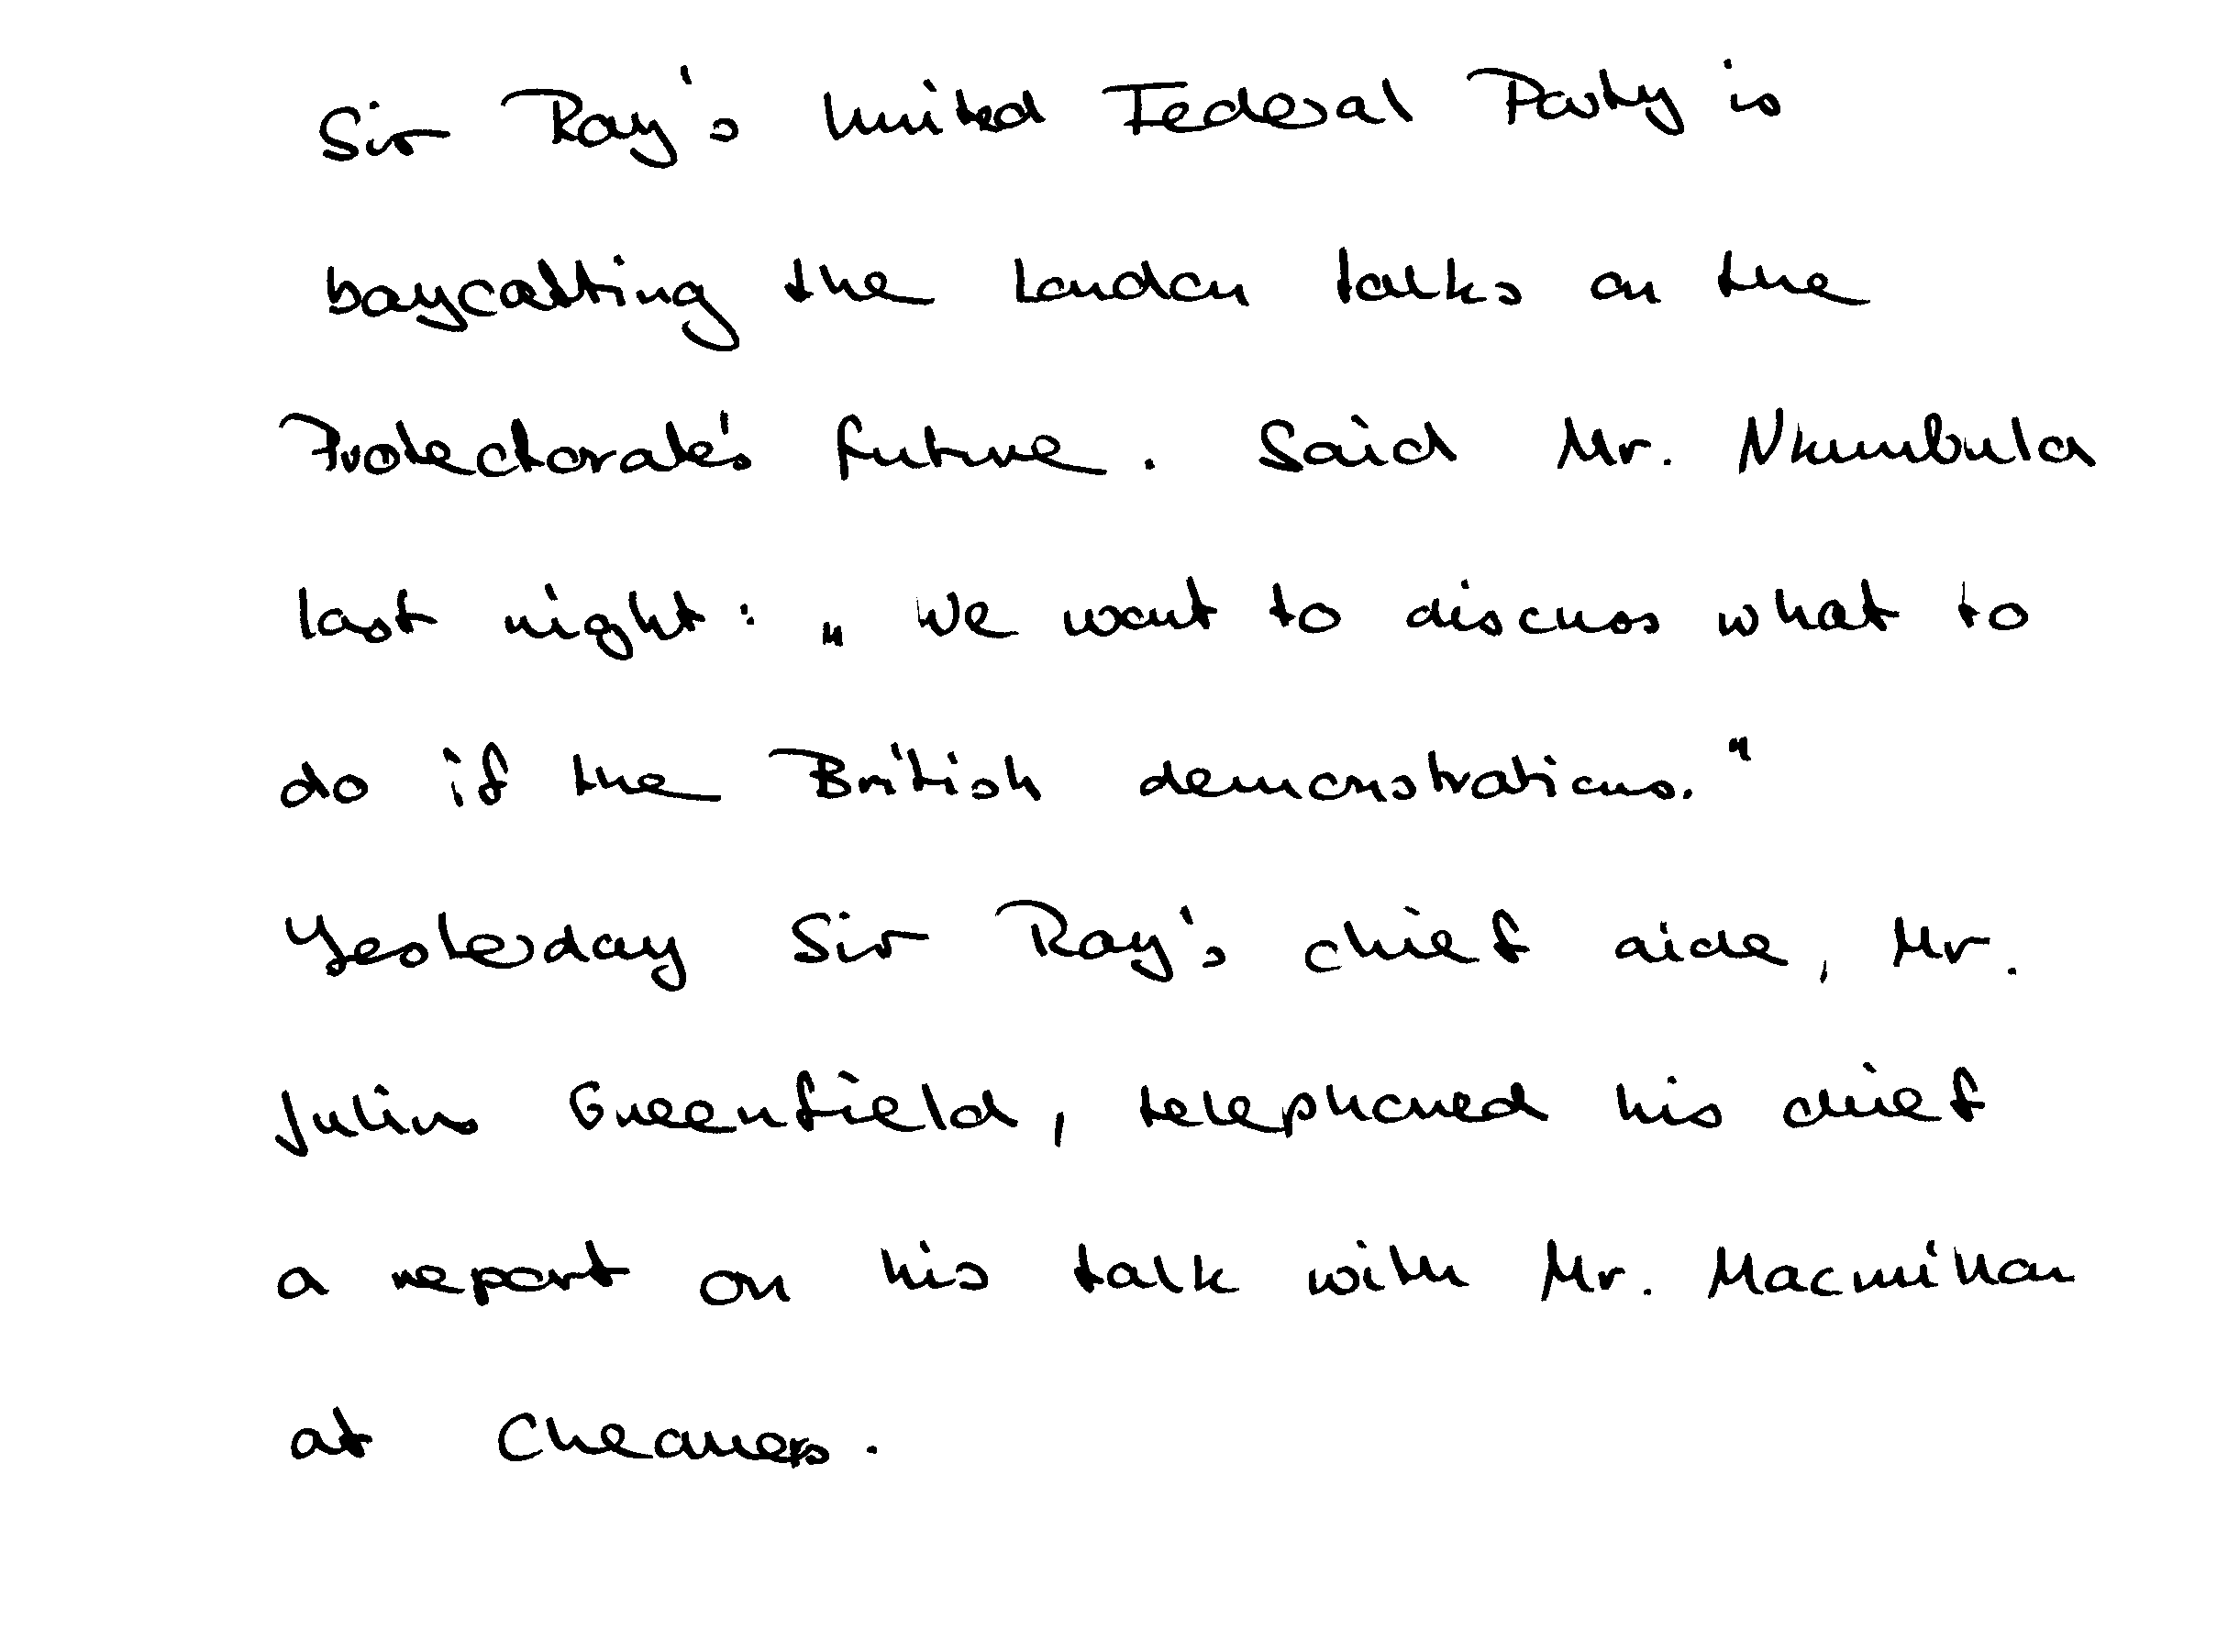 Sir Roy's United Federal Party is
boycotting the London talks on the
Protectorate's future. Said Mr. Nkumbula
last night: „We want to discuss what to
do if the British demonstrations."
Yesterday Sir Roy's chief aide, Mr.
Julius Greenfield, telephoned his chief
a report on his talk with Mr. Macmillan
at Chequers.